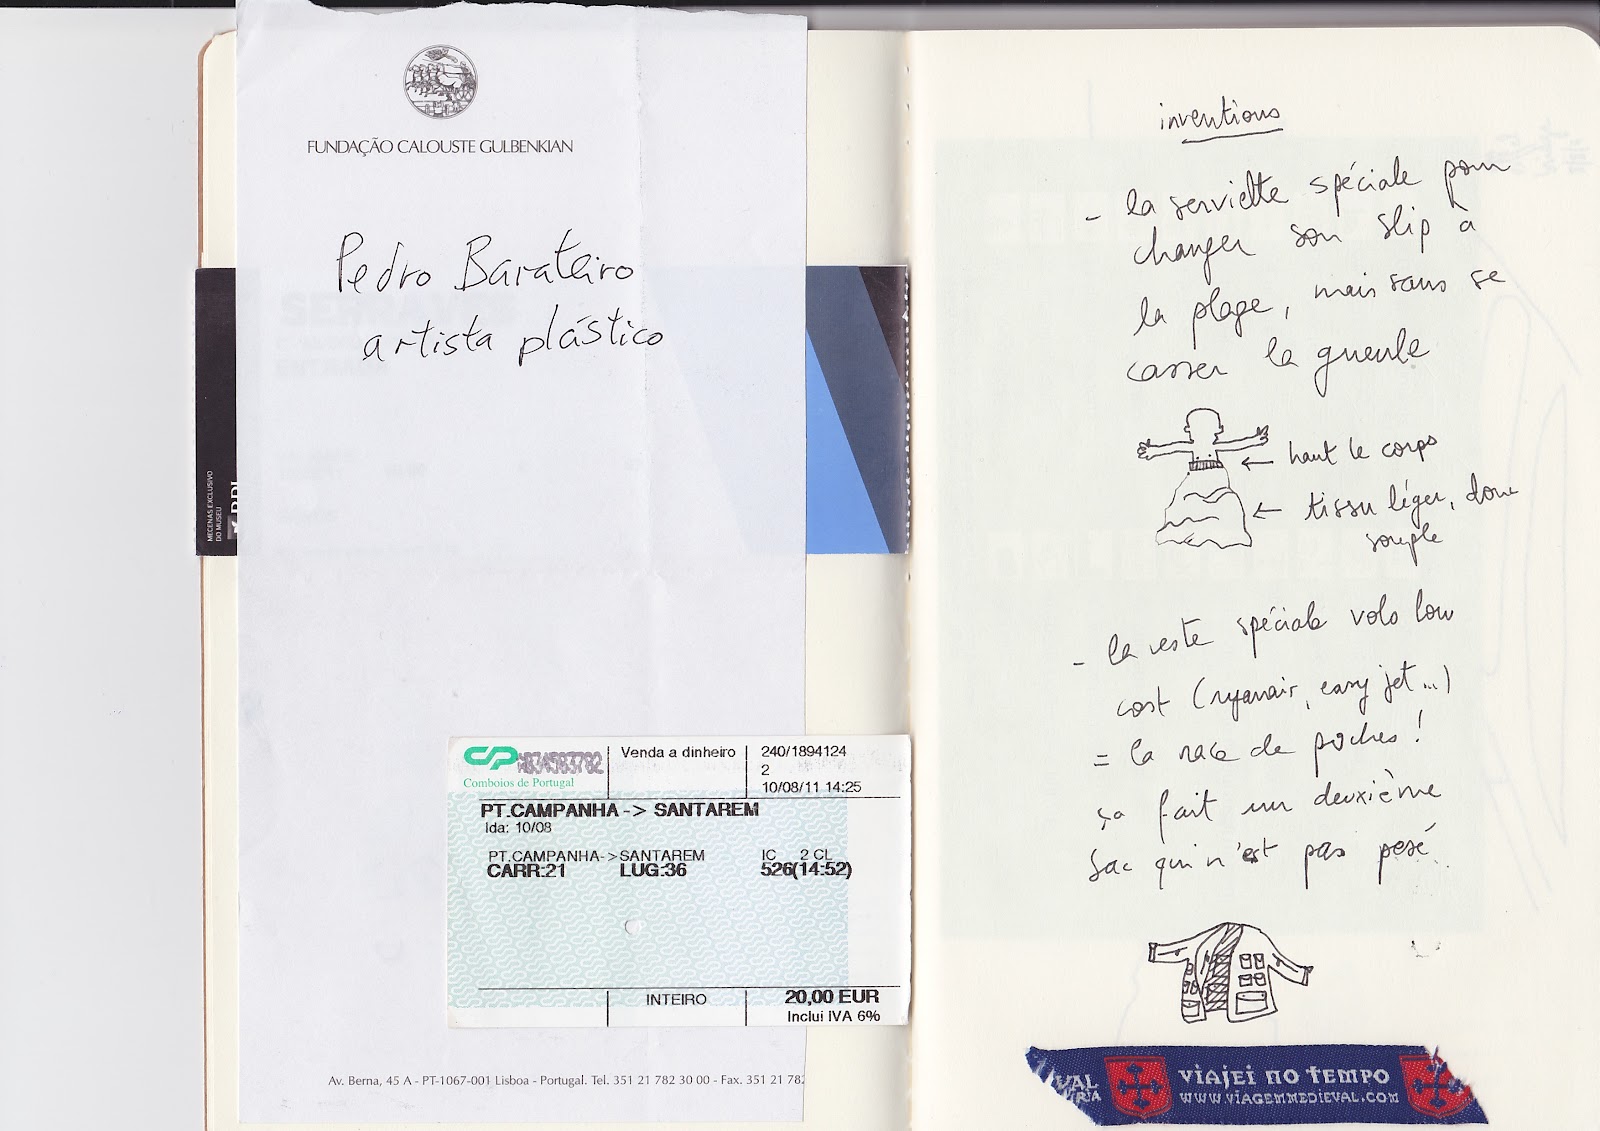 FUNDAÇÃO CALOUSTE GULBENKIAN
Pedro Barateiro
artista plástico
MECENAS EXCLUSIVO
DO MUSEU
CP
Comboios de Portugal
Venda a dinheiro
240/1894124
2
10/08/11 14:25
PT.CAMPANHA -> SANTAREM
Ida: 10/08
PT.CAMPANHA->SANTAREM IC 2 CL
CARR:21 LUG:36 526(14:52)
INTEIRO
20,00 EUR
Inclui IVA 6%
Av. Berna, 45 A - PT-1067-001 Lisboa - Portugal. Tel. 351 21 782 30 00 - Fax. 351 21 782
inventions
- la serviette spéciale pour
changer son slip à
la plage, mais sans se
casser la gueule
← haut le corps
← tissu léger, donc
souple
- la veste spéciale vols low
cost (ryanair, easy jet...)
= la race de poches !
ça fait un deuxième
sac qui n'est pas pesé.
VIAJEI NO TEMPO
WWW.VIAGEMMEDIEVAL.COM